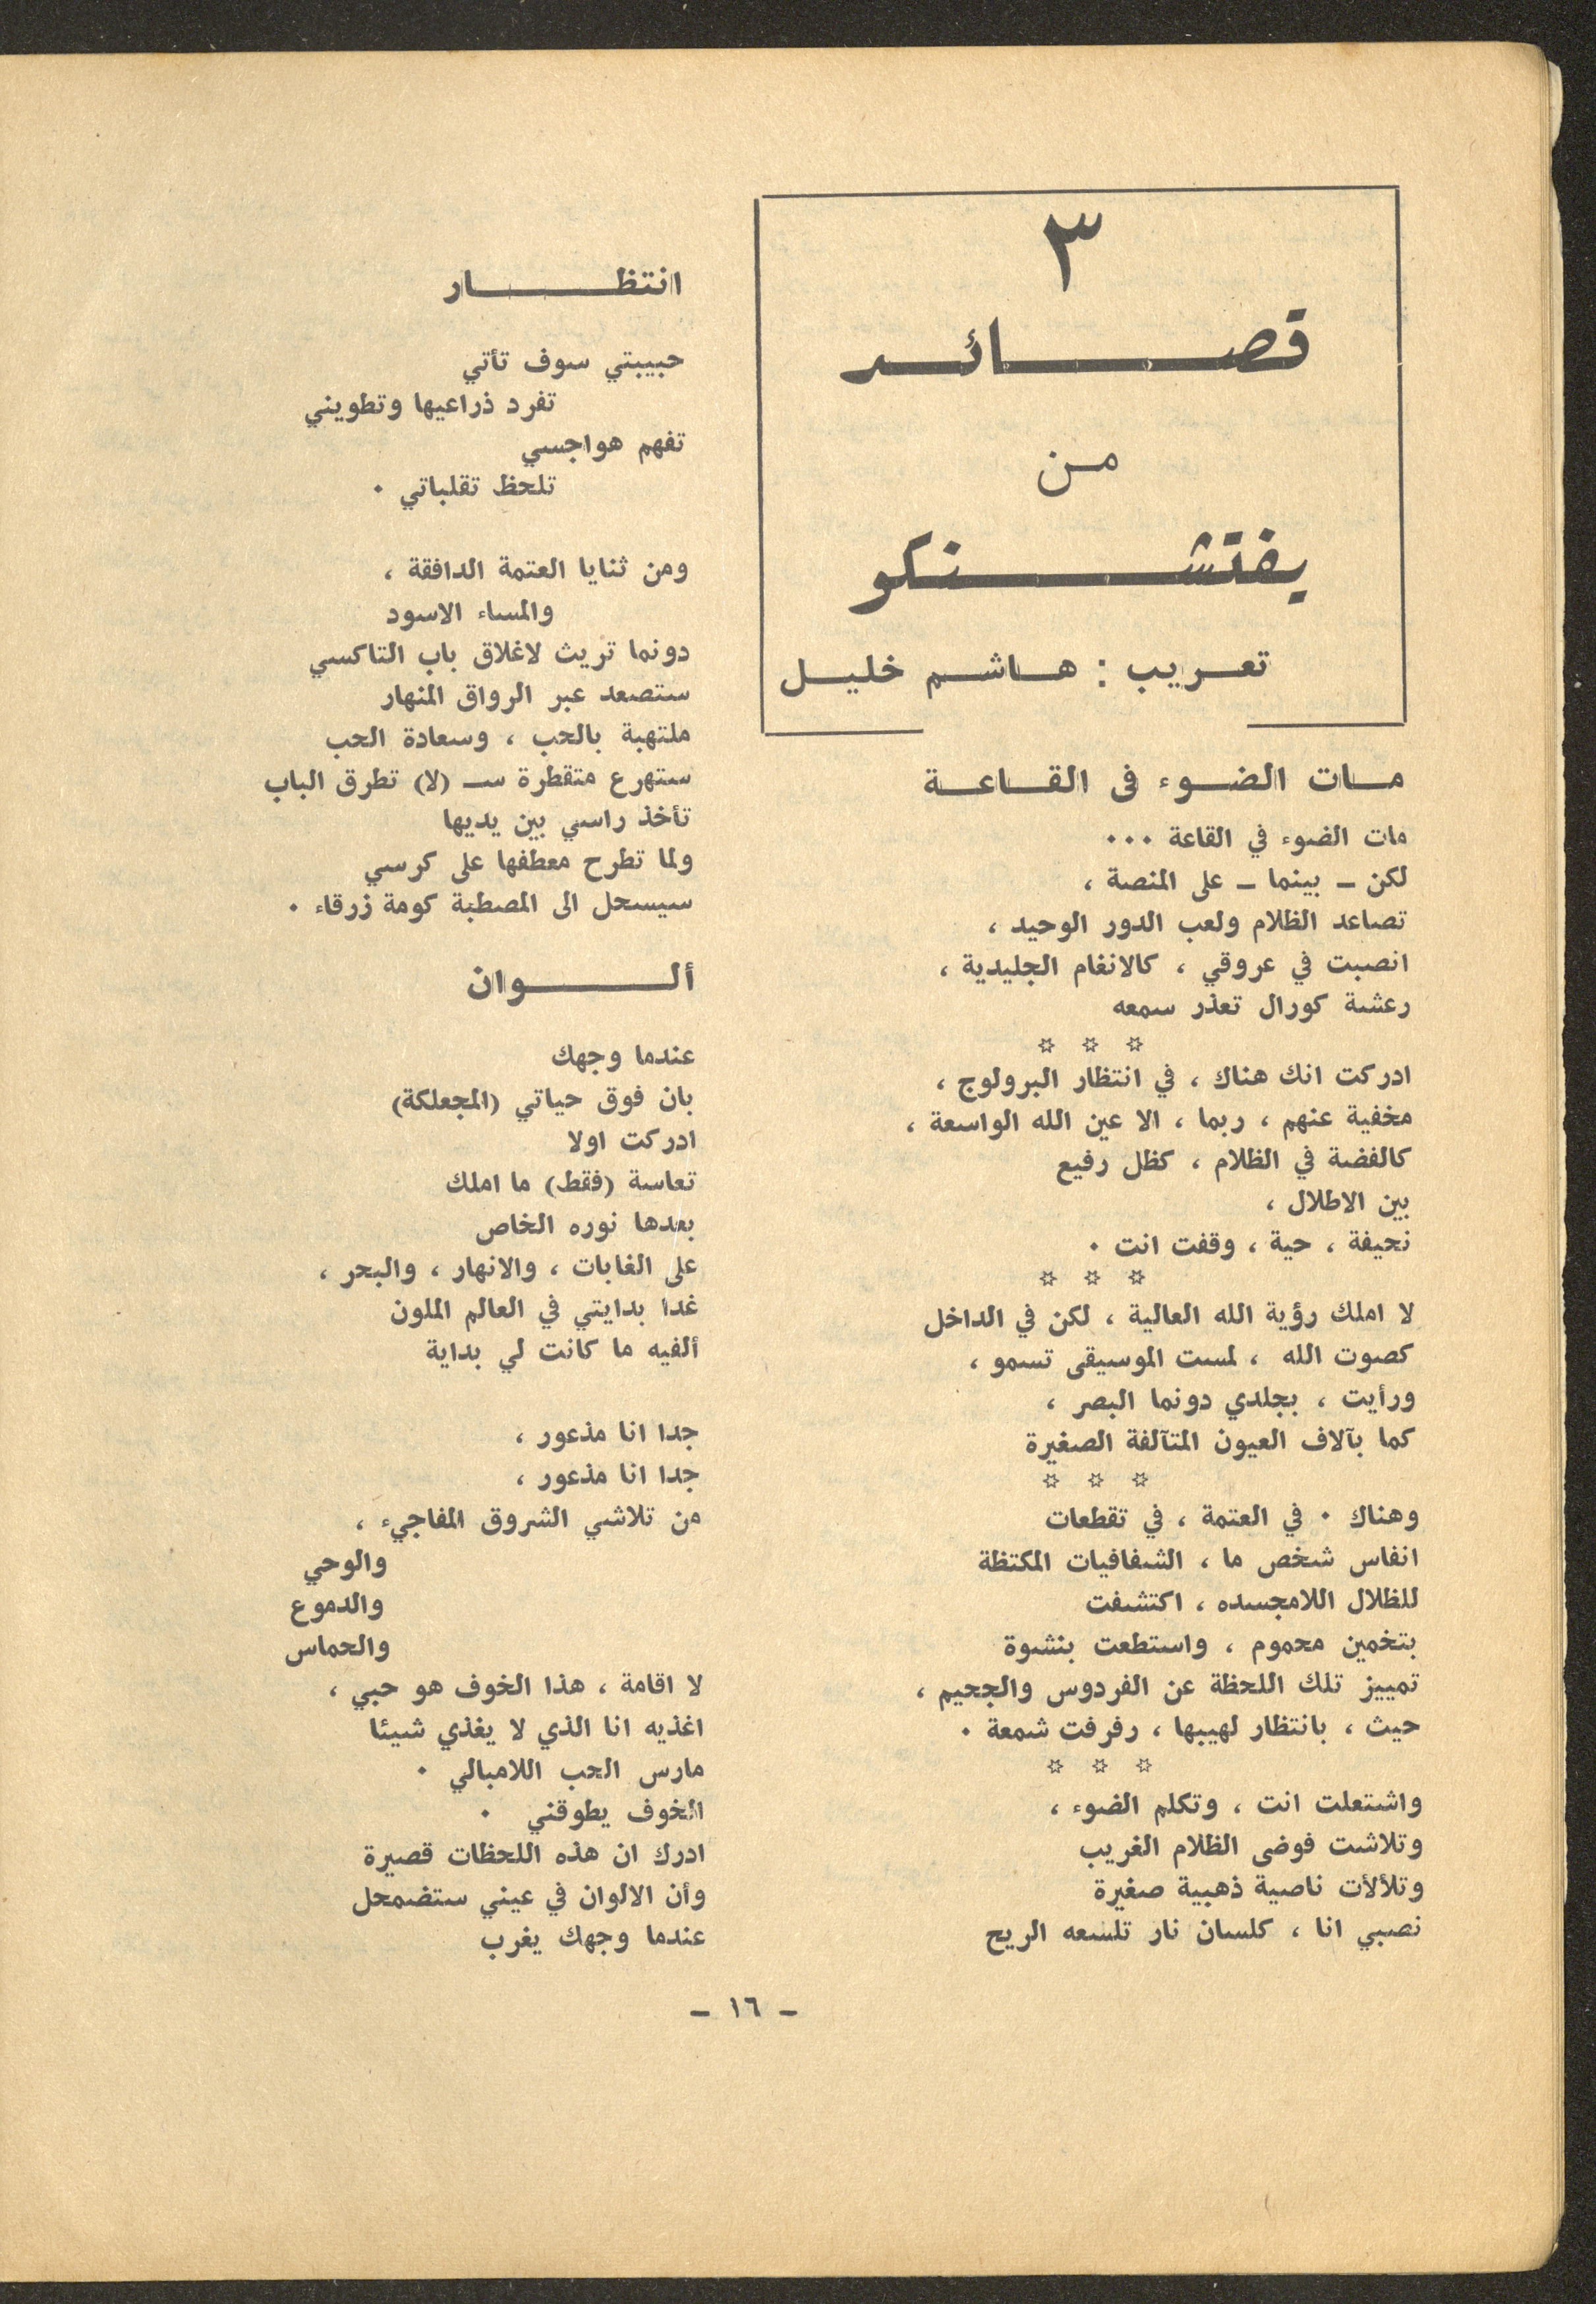 ٣
قصائد
من
يفتشنكو
تعريب : هاشم خليل
مات الضوء فى القاعة
مات الضوء في القاعة ٠٠٠
لكن – بينما – على المنصة ،
تصاعد الظلام ولعب الدور الوحيد ،
انصبت في عروقي ، كالانغام الجليدية ،
رعشة كورال تعذر سمعه
☆ ☆ ☆
ادركت انك هناك ، في انتظار البرولوج ،
مخفية عنهم ، ربما ، الا عين الله الواسعة ،
كالفضة في الظلام ، كظل رفيع
بين الاطلال ،
نحيفة ، حية ، وقفت انت ٠
☆ ☆ ☆
لا املك رؤية الله العالية ، لكن في الداخل
كصوت الله ، لمست الموسيقى تسمو ،
ورأيت ، بجلدي دونما البصر ،
كما بآلاف العيون المتآلفة الصغيرة
☆ ☆ ☆
وهناك ٠ في العتمة ، في تقطعات
انفاس شخص ما ، الشفافيات المكتظة
للظلال اللامجسده ، اكتشفت
بتخمين محموم ، واستطعت بنشوة
تمييز تلك اللحظة عن الفردوس والجحيم ،
حيث ، بانتظار لهيبها ، رفرفت شمعة ٠
☆ ☆ ☆
واشتعلت انت ، وتكلم الضوء ،
وتلاشت فوضى الظلام الغريب
وتلألأت ناصية ذهبية صغيرة
نصبي انا ، كلسان نار تلسعه الريح
انتظار
حبيبتي سوف تأتي
تفرد ذراعيها وتطويني
تفهم هواجسي
تلحظ تقلباتي ٠
ومن ثنايا العتمة الدافقة ،
والمساء الاسود
دونما تريث لاغلاق باب التاكسي
ستصعد عبر الرواق المنهار
ملتهبة بالحب ، وسعادة الحب
ستهرع متقطرة سـ (لا) تطرق الباب
تأخذ راسي بين يديها
ولما تطرح معطفها على كرسي
سيسحل الى المصطبة كومة زرقاء ٠
ألوان
عندما وجهك
بان فوق حياتي (المجعلكة)
ادركت اولا
تعاسة (فقط) ما املك
بعدها نوره الخاص
على الغابات ، والانهار ، والبحر ،
غدا بدايتي في العالم الملون
ألفيه ما كانت لي بداية
جدا انا مذعور ،
جدا انا مذعور ،
من تلاشي الشروق المفاجيء ،
والوحي
والدموع
والحماس
لا اقامة ، هذا الخوف هو حبي ،
اغذيه انا الذي لا يغذي شيئا
مارس الحب اللامبالي ٠
الخوف يطوقني ٠
ادرك ان هذه اللحظات قصيرة
وأن الالوان في عيني ستضمحل
عندما وجهك يغرب
– ١٦ –